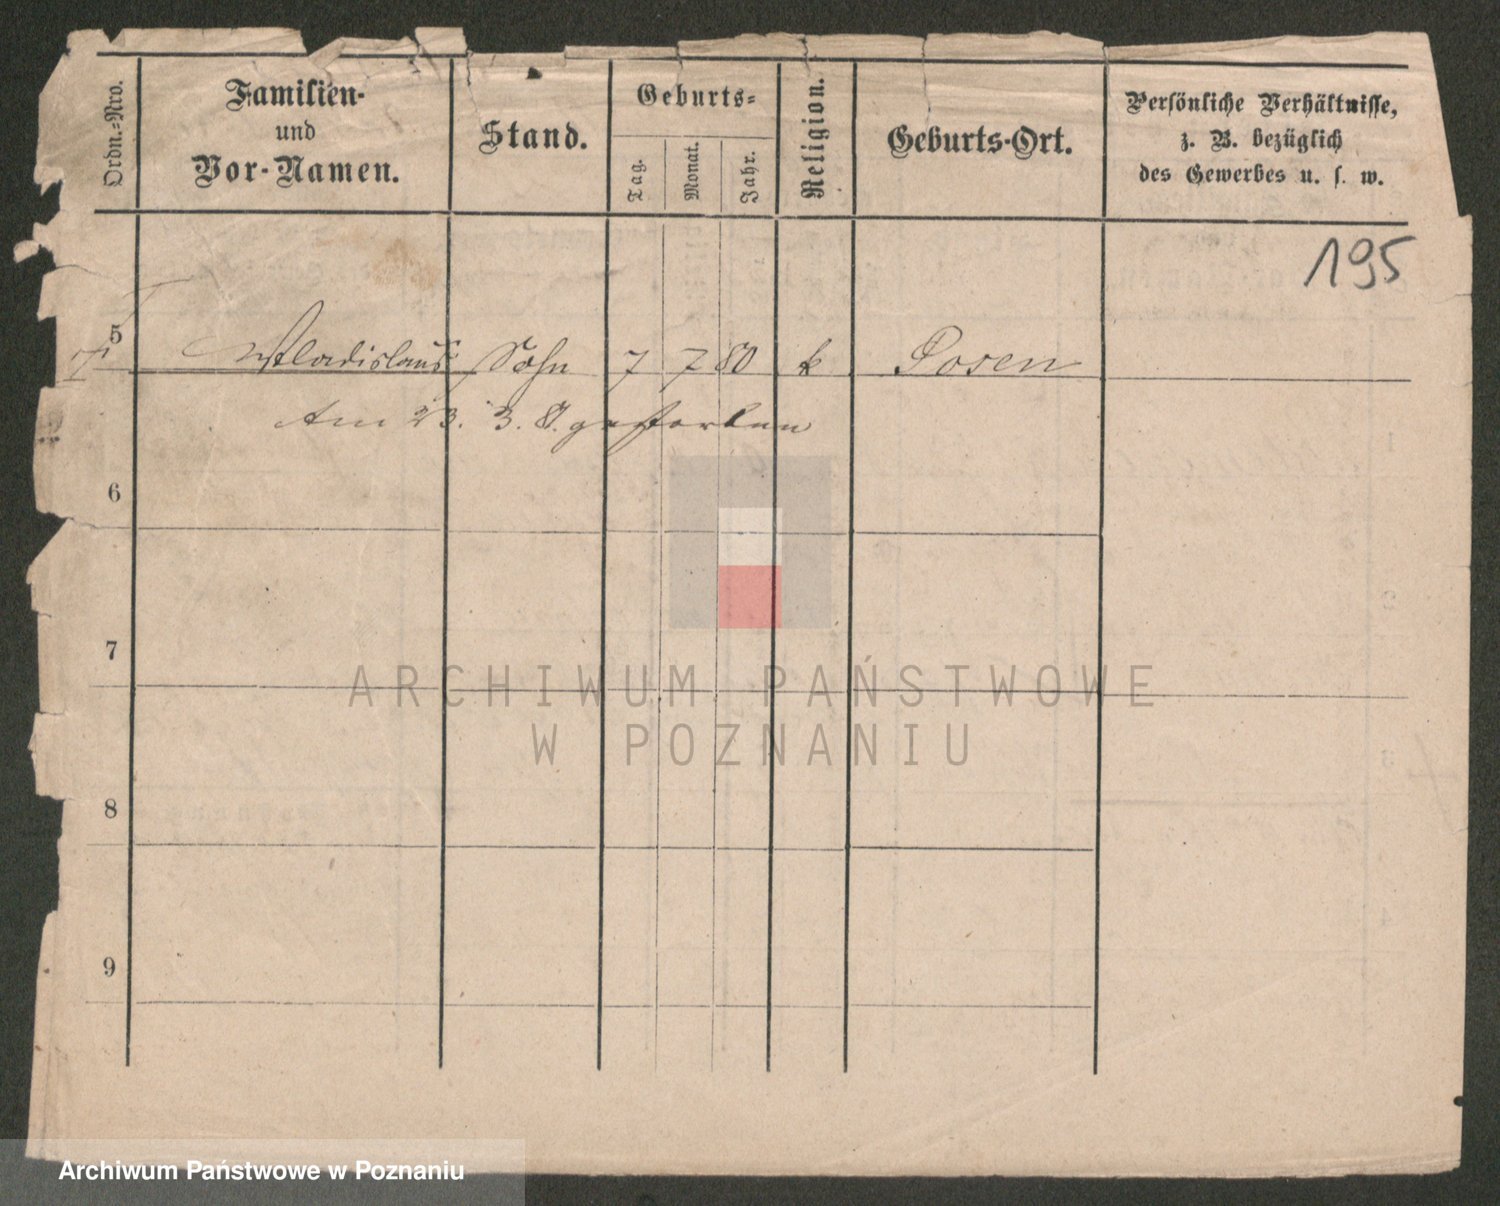 Ordn.=Nro.
Familien-
und
Vor-Namen.
Stand.
Geburts=
Tag.
Monat.
Jahr.
Religion.
Geburts-Ort.
Persönliche Verhältnisse,
z. B. bezüglich
des Gewerbes u. s. w.
195
5
Wladislaus Sohn 7 7 80 k Posen
Am 23. 3. 8. gestorben
6
7
8
9
ARCHIWUM PAŃSTWOWE
W POZNANIU
Archiwum Państwowe w Poznaniu